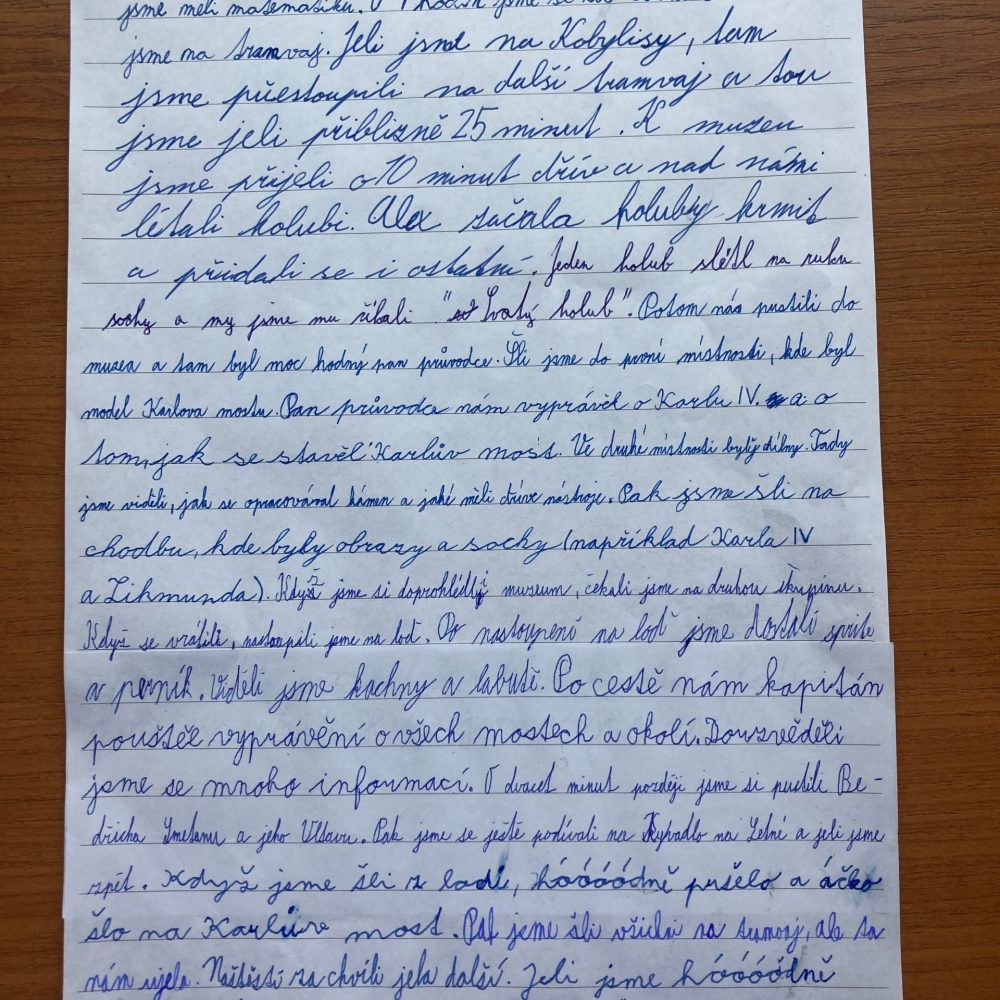 jsme měli matematiku. V
jsme na tramvaj. Jeli jsme na Kobylisy, tam
jsme přestoupili na další tramvaj a tou
jsme jeli přiblizně 25 minut. K muzeu
jsme přijeli o 10 minut dřív a nad námi
létali holubi. Ala začala holuby krmit
a přidali se i ostatní. Jeden holub slétl na ruku
sochy a my jsme mu říkali "Svatý holub". Potom nás pustili do
muzea a tam byl moc hodný pan průvodce. Šli jsme do první místnosti, kde byl
model Karlova mostu. Pan průvodce nám vyprávěl o Karlu IV. a o
tom, jak se stavěl Karlův most. Ve druhé místnosti byly dílny. Tady
jsme viděli, jak se opracovával kámen a jaké měli dříve nástroje. Pak jsme šli na
chodbu, kde byly obrazy a sochy (například Karla IV
a Zikmunda). Když jsme si doprohlédli museum, čekali jsme na druhou skupinu.
Když se vrátili, nastoupili jsme na loď. Po nastoupení na loď jsme dostali sprite
a perník. Viděli jsme kachny a labutě. Po cestě nám kapitán
pouštěl vyprávění o všech mostech a okolí. Dozvěděli
jsme se mnoho informací. O dvacet minut později jsme si pustili Be-
dřicha Smetanu a jeho Vltavu. Pak jsme se ještě podívali na Kyvadlo na Letné a jeli jsme
zpět. Když jsme šli z lodě, hóóóódně pršelo a áčko
šlo na Karlův most. Pak jsme šli všichni na tramvaj, ale ta
nám ujela. Naštěstí za chvíli jela další. Jeli jsme hóóóódně